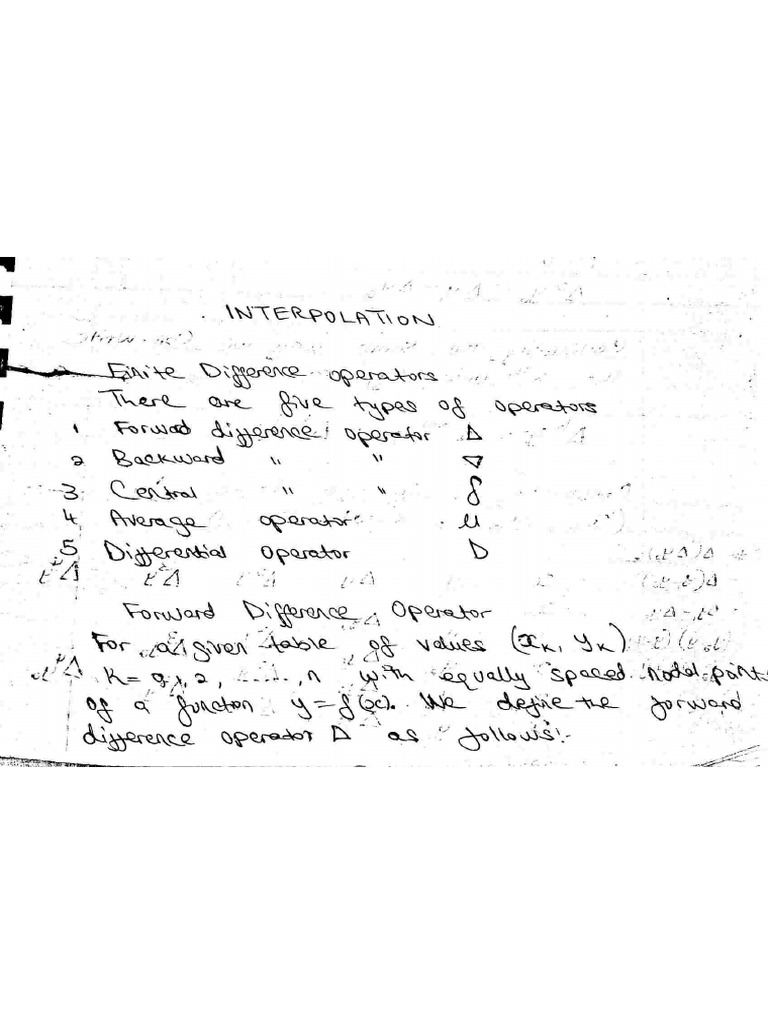 INTERPOLATION
Finite Difference operators
There are five types of operators
1 Forwad difference operator Δ
2 Backward " " ∇
3 Central " " δ
4 Average operator μ
5 Differential operator D
Forward Difference Operator
For a given table of values (xₖ, yₖ)
K = 0, 1, 2, ......, n with equally spaced nodal points
of a functon y = f(x). We define the forward
difference operator Δ as follows:-